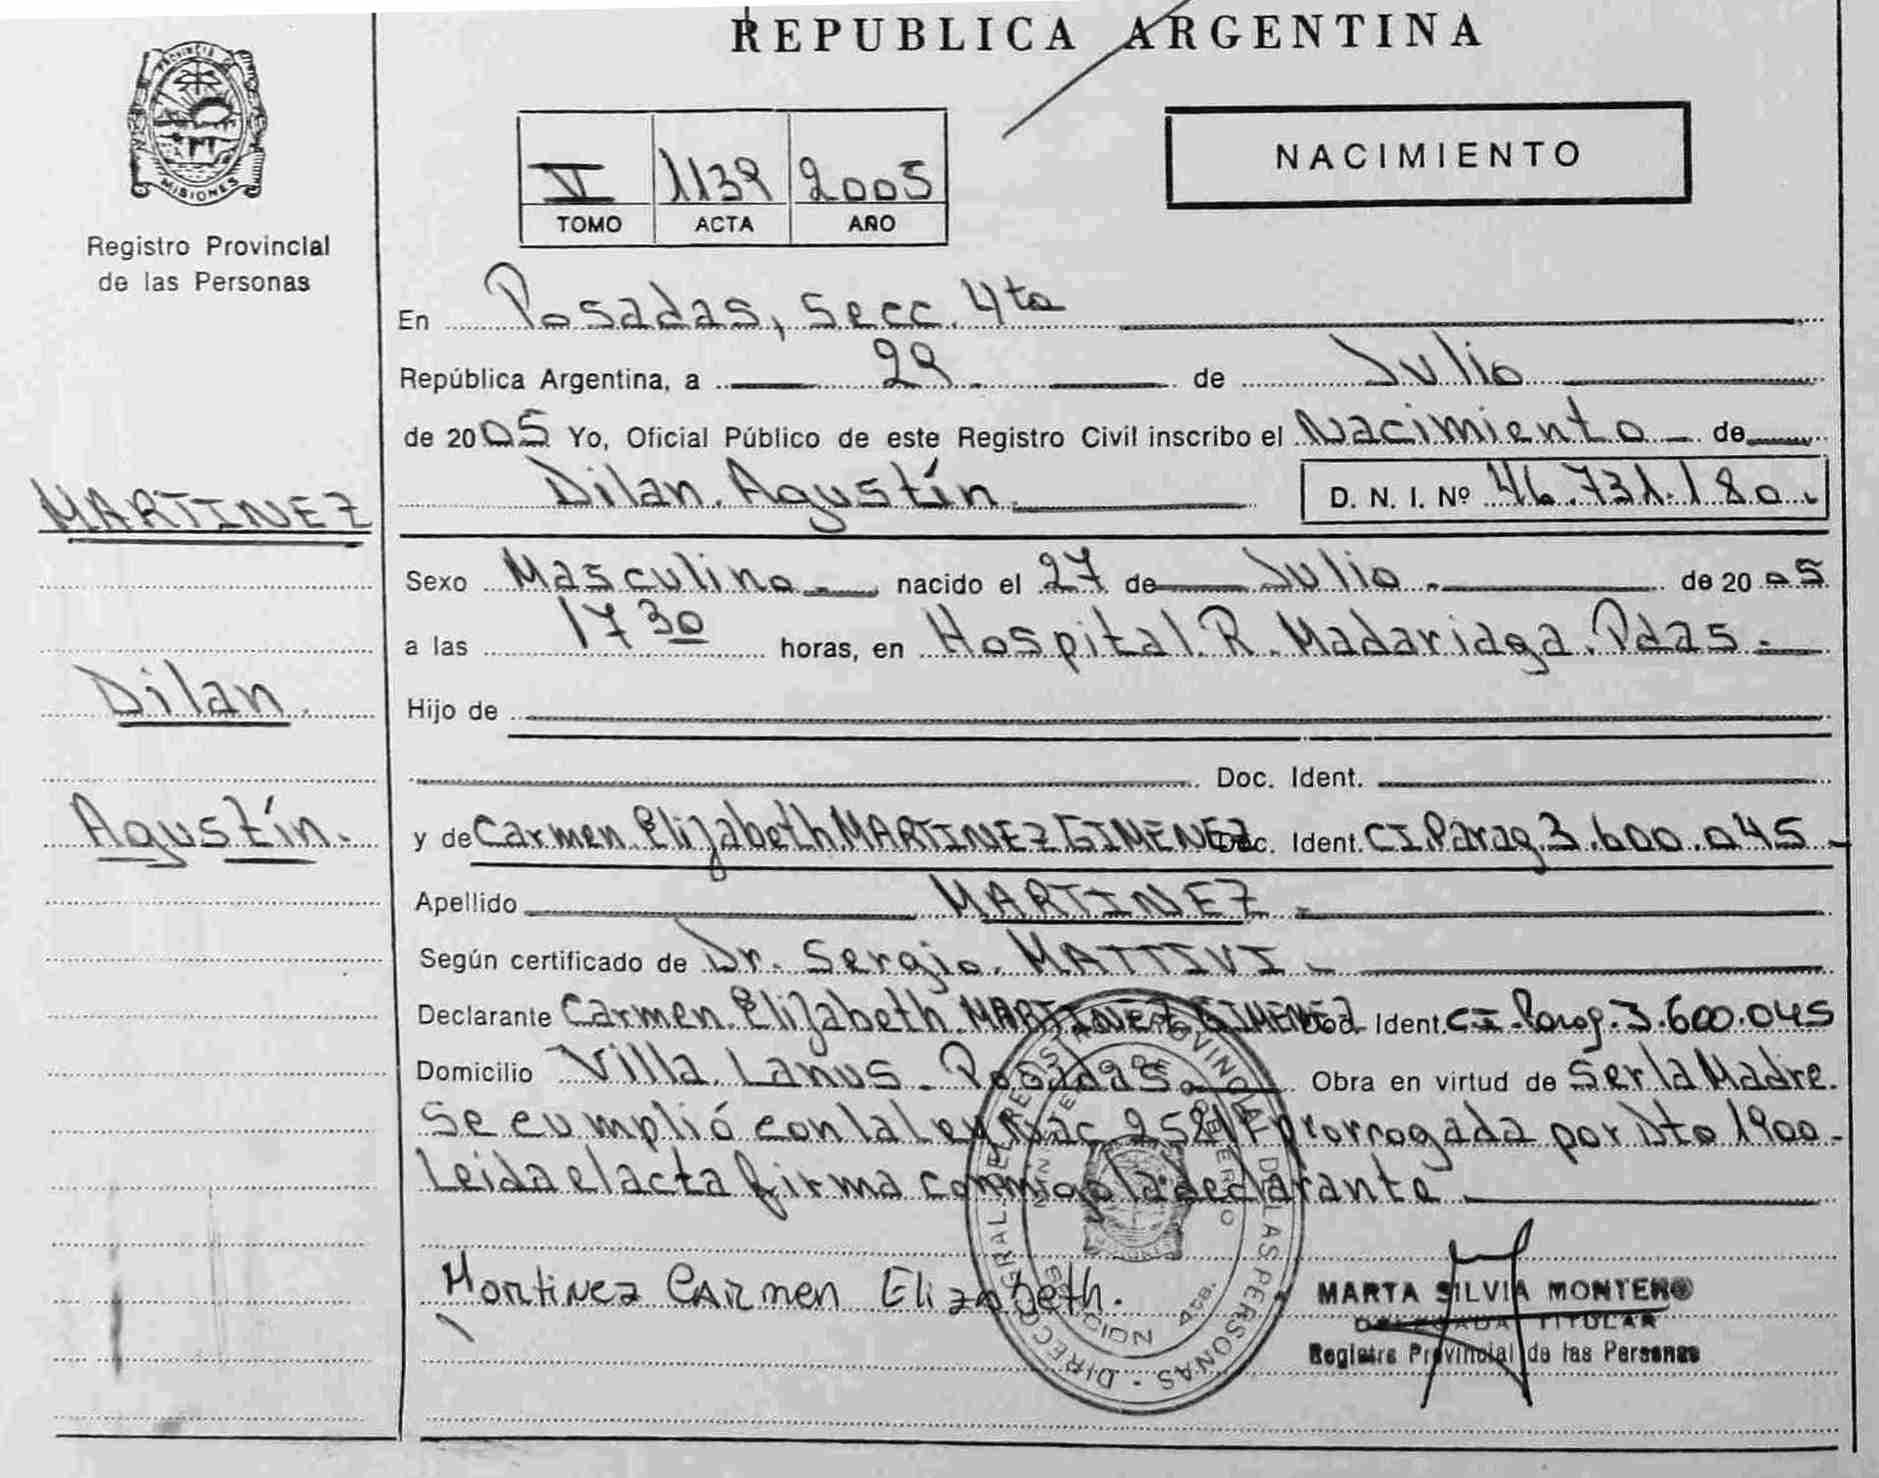 REPUBLICA ARGENTINA
PROVINCIA DE
MISIONES
Registro Provincial
de las Personas
V 1139 2005
TOMO ACTA AÑO
NACIMIENTO
En Posadas, Secc. 4ta
República Argentina, a 29 de Julio
de 2005 Yo, Oficial Público de este Registro Civil inscribo el Nacimiento de
Dilan Agustín D. N. I. Nº 46.731.180.
MARTINEZ
Dilan
Agustín.
Sexo Masculino nacido el 27 de Julio de 2005
a las 17 30 horas, en Hospital R. Madariaga. Pdas.
Hijo de
Doc. Ident.
y de Carmen Elizabeth MARTINEZ GIMENEZ Doc. Ident. CI. Parag 3.600.045
Apellido MARTINEZ
Según certificado de Dr. Sergio MATTIVI
Declarante Carmen Elizabeth MARTINEZ GIMENEZ Doc. Ident. CI. Parag. 3.600.045
Domicilio Villa Lanus - Posadas. Obra en virtud de Ser la Madre.
Se cumplió con la Ley Nac. prorrogada por Dto 1900.
Leida el acta firma conmigo la declarante
Martinez Carmen Elizabeth.
DIRECC. GRAL. DE REGISTRO PROVINCIAL DE LAS PERSONAS
MINISTERIO DE GOBIERNO
SECCION 4ta.
MARTA SILVIA MONTERO
DELEGADA TITULAR
Registro Provincial de las Personas